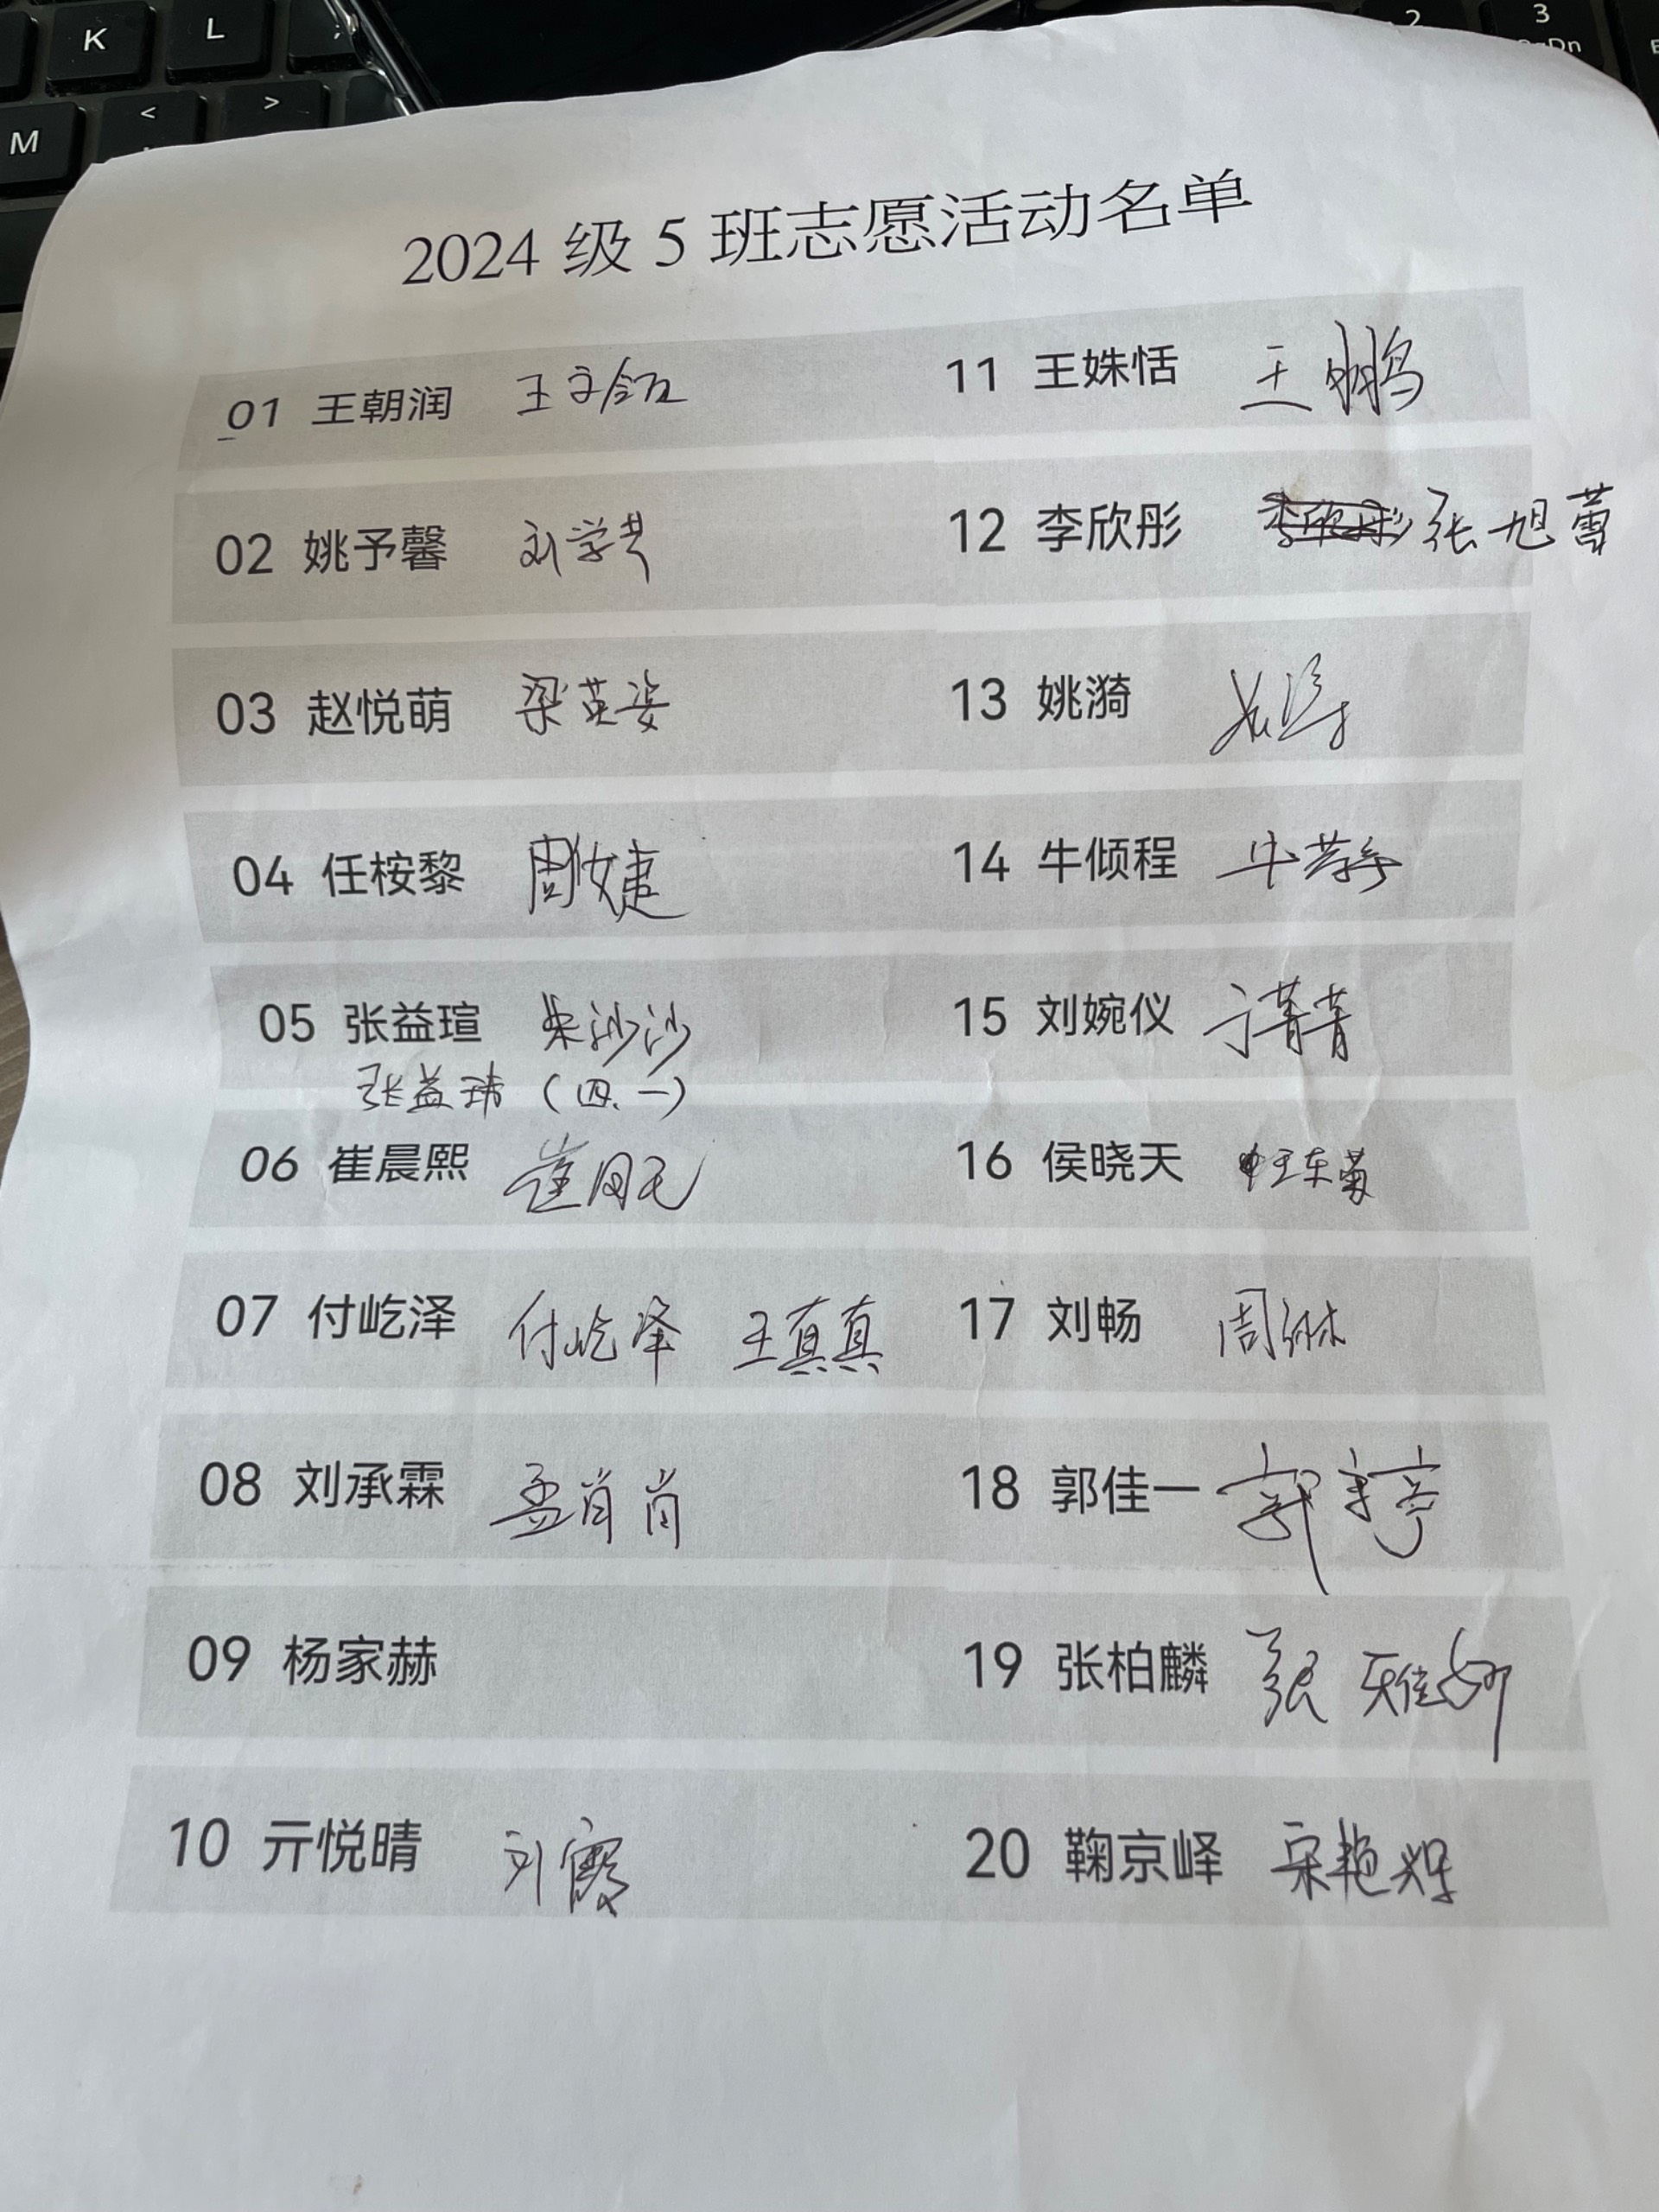 K
L
;
M
<
>
2
3
PgDn
2024 级 5 班志愿活动名单
01 王朝润 王
02 姚予馨 刘学芹
03 赵悦萌 梁英姿
04 任桉黎 周婕
05 张益瑄 朱沙沙
张益玮（四.一）
06 崔晨熙 崔
07 付屹泽 付屹泽 王真真
08 刘承霖 孟肖肖
09 杨家赫
10 亓悦晴 刘霞
11 王姝恬 王鹏
12 李欣彤 李欣彤 张旭蕾
13 姚漪 姚涛
14 牛倾程 牛
15 刘婉仪 于菁菁
16 侯晓天 王东菊
17 刘畅 周琳
18 郭佳一 郭
19 张柏麟 张
20 鞠京峄 宋艳